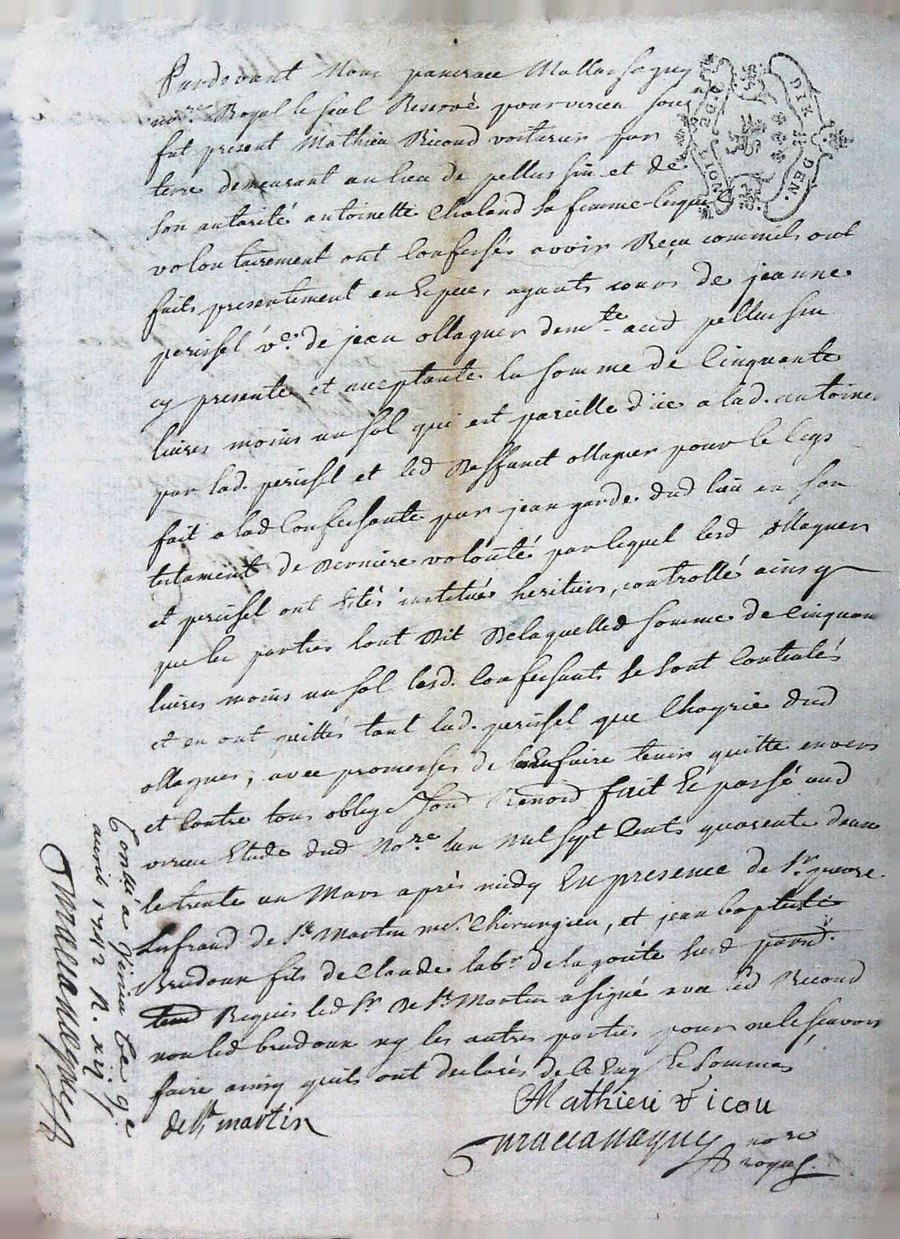 Pardevant Nous pancrace
no.re Royal le seal Reservé pour virieu sous
fut present Mathieu Ricoud voiturin sur
terre demeurant au lieu de pellussin et de
son autorité antoinette Chaland sa femme lesque
volontairement ont Confessés avoir Reçu comm'ils ont
faits presentement en Especes ayants cours de jeanne
perissel v.e de jean ollagner dem.te aud pellussin
cy presente et acceptante la somme de Cinquante
livres moins un sol qui est pareille düe a lad. antoine
par lad. perissel et led Deffunct ollagner pour le legs
fait a lad Confessante par jean garde dud lieu en son
testament de Derniere volonté par lequel lesd ollagner
et perissel ont Etés institués heritiers, controllé ainsy
que les parties l'ont Dit De laquelled somme de Cinquan
livres moins un sol lesd. Confessants se sont Contentés
et en ont quittés tant lad. perissel que l'hoyrie dud
ollagner, avec promesses de l'en faire tenir quitte envers
et Contre tous oblige Soud Renond fait Et passé aud
virieu Etude dud No.re l'an Mil sept Cents quarente deux
le trente un Mars après midy En presence de S.r
de S.t Martin m.e Chirurgien, et jean baptiste
fils de Claude lab.r de la susd
Requis led S.r De S.t Martin a signé avec led Ricoud
non led ny les autres parties pour ne le sçavoir
faire ainsy qu'ils ont declarés de ce Enq Et Sommés
de S.t martin
Mathieu Ricou
no.re
royal.
DIX DEN.
avril 1742 R. xij